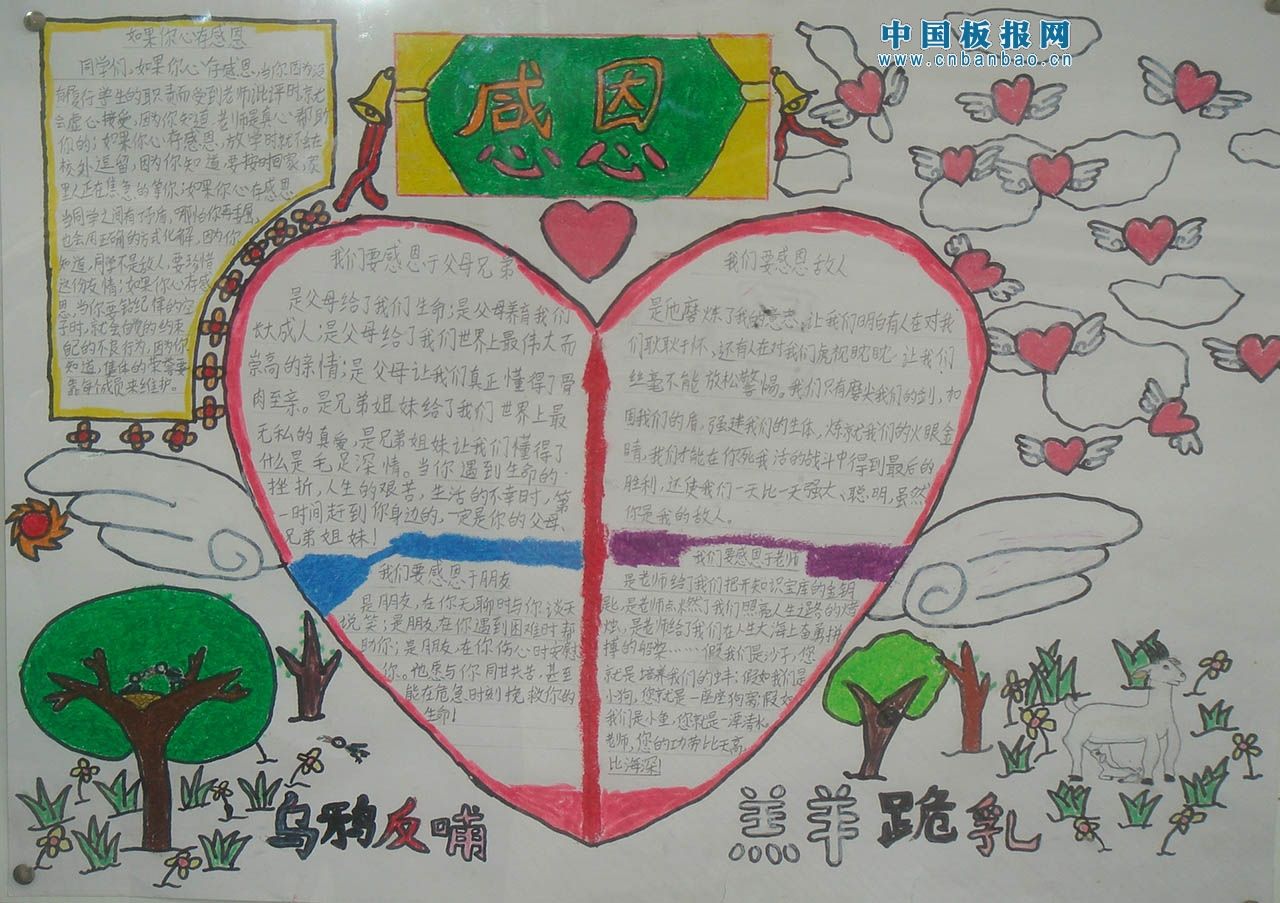 中国板报网
www.cnbanbao.cn
感恩
如果你心存感恩
同学们,如果你心存感恩,当你因为没
有履行学生的职责而受到老师批评时,就
会虚心接受,因为你知道,老师是真心帮助
你的;如果你心存感恩,放学时就不会在
校外逗留,因为你知道,要按时回家,家
里人正在焦急的等你;如果你心存感恩
当同学之间有矛盾,哪怕你再委屈,
也会用正确的方式化解,因为你
知道,同学不是敌人,要珍惜
这份友情;如果你心存感
恩,当你要钻纪律的空
子时,就会自觉的约束
自己的不良行为,因为你
知道,集体的荣誉要
靠每个成员来维护。
我们要感恩于父母兄弟
是父母给了我们生命;是父母养育我们
长大成人;是父母给了我们世界上最伟大而
崇高的亲情;是父母让我们真正懂得了骨
肉至亲。是兄弟姐妹给了我们世界上最
无私的真爱,是兄弟姐妹让我们懂得了
什么是手足深情。当你遇到生命的
挫折,人生的艰苦,生活的不幸时,第
一时间赶到你身边的,一定是你的父母、
兄弟姐妹!
我们要感恩于朋友
是朋友,在你无聊时与你谈天
说笑;是朋友在你遇到困难时帮
助你;是朋友,在你伤心时安慰
你。他愿与你同甘共苦,甚至
能在危急时刻挽救你的
生命!
我们要感恩敌人
是他磨炼了我的意志,让我们明白有人在对我
们耿耿于怀,还有人在对我们虎视眈眈,让我们
丝毫不能放松警惕。我们只有磨尖我们的剑,加
固我们的盾,强健我们的生体,炼就我们的火眼金
睛,我们才能在你死我活的战斗中得到最后的
胜利,还使我们一天比一天强大、聪明,虽然
你是我的敌人。
我们要感恩于老师
是老师给了我们把开知识宝库的金钥
匙,是老师点燃了我们照亮人生道路的烛
烛,是老师给了我们在人生大海上奋勇拼
搏的船桨……假我们是沙子,您
就是培养我们的蚌;假如我们是
小狗,您就是一座座狗窝;假如
我们是小鱼,您就是一潭清水
老师,您的功劳比天高,
比海深!
乌鸦反哺
羔羊跪乳